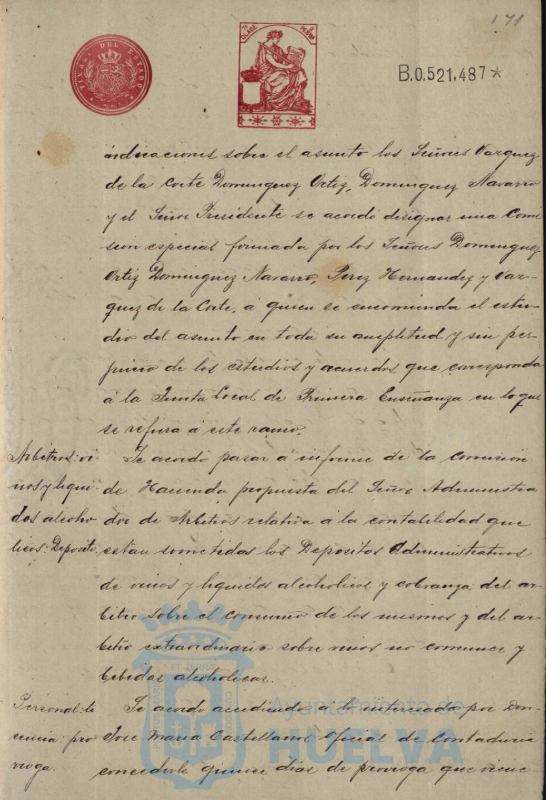 171
TIMBRE DEL ESTADO
B.0.521,487*
indicaciones sobre el asunto los Señores Vazquez
de la Corte Dominguez Ortiz, Dominguez Navarro
y el Señor Presidente se acordó designar una Comi
sion especial formada por los Señores Dominguez
Ortiz Dominguez Navarro, Perez Hernandez y Vaz-
quez de la Corte, á quien se encomienda el estu-
dio del asunto en toda su amplitud y sin per-
juicio de los estudios y acuerdos que corresponda
á la Junta Local de Primera Enseñanza en lo que
se refiera á este ramo.
Arbitros: vi
nos y liqui
dos alcoho
licos: Deposito
Se acordó pasar á informe de la comision
de Hacienda propuesta del Señor Administra
dor de Arbitros relativa á la contabilidad que
estan sometidos los Depositos Administrativos
de vinos y liquidos alcoholicos y cobranza del ar-
bitro sobre el consumo de los mismos y del ar-
bitrio extraordinario sobre vinos no comunes y
bebidas alcoholicas.
Personal: li
cencia: pro
rroga.
Se acordó accediendo a lo interesado por Don
Jose Maria Castellanos Oficial de Contaduria
concederle quince dias de prorroga que vienen
Ayuntamiento de
HUELVA